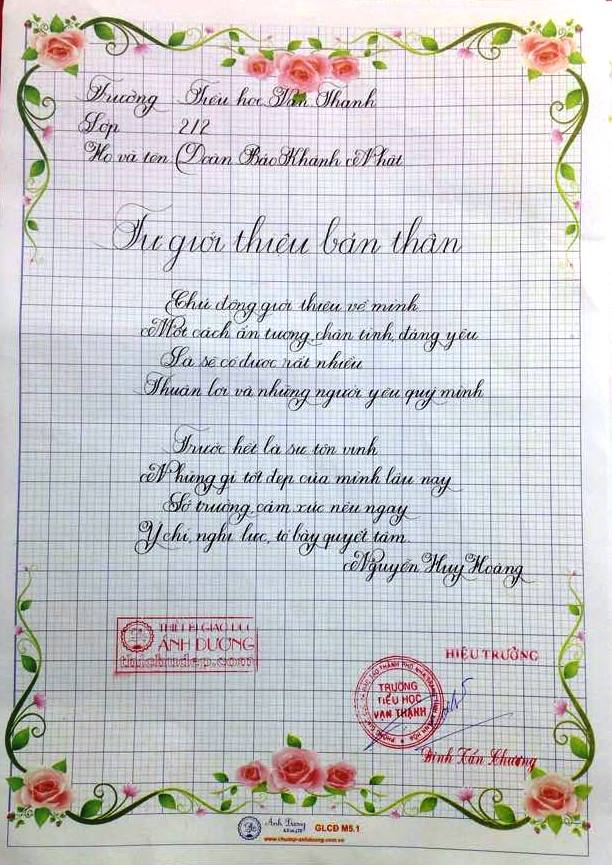 Trường Tiểu học Vạn Thạnh
Lớp 2/2
Họ và tên Đoàn Bảo Khánh Nhật
Tự giới thiệu bản thân
Chủ động giới thiệu về mình
Một cách ấn tượng, chân tình, đáng yêu
Là sẽ có được rất nhiều
Thuận lợi và những người yêu quý mình
Trước hết là sự tôn vinh
Những gì tốt đẹp của mình lâu nay
Sở trường, cảm xúc nêu ngay
Ý chí, nghị lực, tỏ bày quyết tâm.
Nguyễn Huy Hoàng
THIẾT BỊ GIÁO DỤC
ÁNH DƯƠNG
thichudep.com
HIỆU TRƯỞNG
TRƯỜNG
TIỂU HỌC
VẠN THẠNH
Đinh Tấn Chương
Ánh Dương
GLCĐ M5.1
www.chudep-anhduong.com.vn